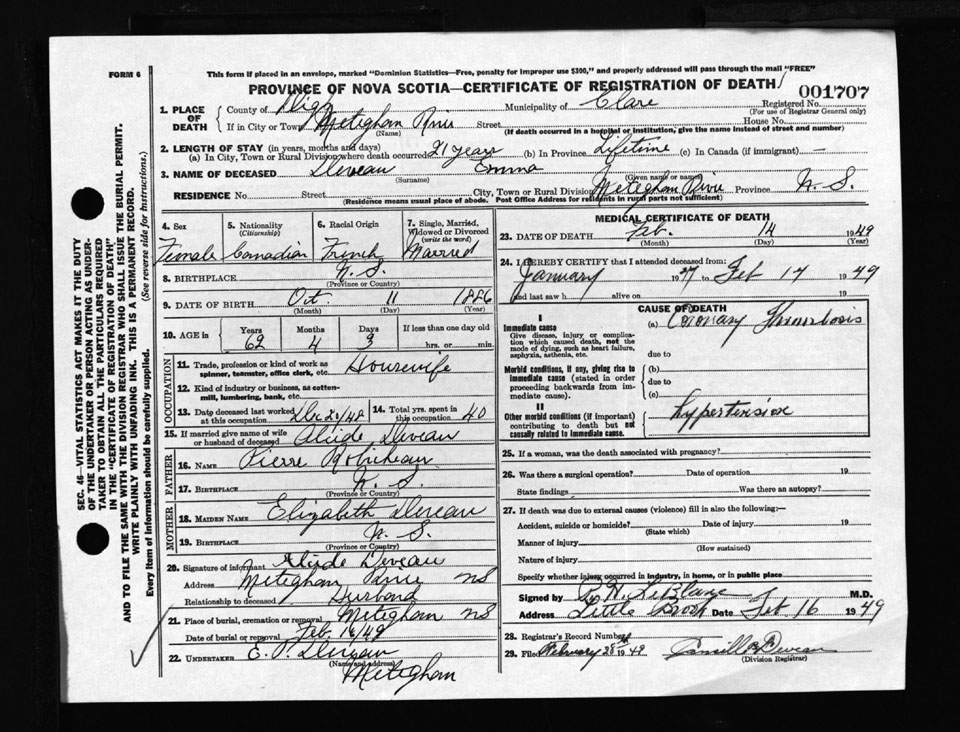 FORM 6
This form if placed in an envelope, marked "Dominion Statistics—Free, penalty for improper use $300," and properly addressed will pass through the mail "FREE"
PROVINCE OF NOVA SCOTIA—CERTIFICATE OF REGISTRATION OF DEATH
001707
1. PLACE OF DEATH
County of Digby Municipality of Clare Registered No.
(For use of Registrar General only)
If in City or Town Meteghan River Street House No.
(Name) (If death occurred in a hospital or institution, give the name instead of street and number)
2. LENGTH OF STAY (in years, months and days)
(a) In City, Town or Rural Division where death occurred 21 years (b) In Province Lifetime (c) In Canada (if immigrant) —
3. NAME OF DECEASED Deveau Emma
(Surname) (Given name or names)
RESIDENCE No. Street City, Town or Rural Division Meteghan River Province N. S.
(Residence means usual place of abode. Post Office Address for residents in rural parts not sufficient)
4. Sex 5. Nationality (Citizenship) 6. Racial Origin 7. Single, Married, Widowed or Divorced (write the word)
Female Canadian French Married
8. BIRTHPLACE N. S.
(Province or Country)
9. DATE OF BIRTH Oct 11 1886
(Month) (Day) (Year)
10. AGE in Years Months Days If less than one day old
62 4 3 hrs. or min.
OCCUPATION
11. Trade, profession or kind of work as spinner, teamster, office clerk, etc. Housewife
12. Kind of industry or business, as cotton-mill, lumbering, bank, etc.
13. Date deceased last worked at this occupation Dec 24/48 14. Total yrs. spent in this occupation 40
15. If married give name of wife or husband of deceased Alcide Deveau
FATHER
16. NAME Pierre Robicheau
17. BIRTHPLACE N. S.
(Province or Country)
MOTHER
18. MAIDEN NAME Elizabeth Deveau
19. BIRTHPLACE N. S.
(Province or Country)
20. Signature of informant Alcide Deveau
Address Meteghan River NS
Relationship to deceased Husband
21. Place of burial, cremation or removal Meteghan NS
Date of burial or removal Feb. 16/49
22. UNDERTAKER E. P. Deveau
(Name and address)
Meteghan
MEDICAL CERTIFICATE OF DEATH
23. DATE OF DEATH Feb. 14 1949
(Month) (Day) (Year)
24. I HEREBY CERTIFY that I attended deceased from:
January 1927 to Feb 14 1949
and last saw h alive on 19
CAUSE OF DEATH
I
Immediate cause
Give disease, injury or complication which caused death, not the mode of dying, such as heart failure, asphyxia, asthenia, etc.
(a) Coronary Thrombosis
due to
Morbid conditions, if any, giving rise to immediate cause (stated in order proceeding backwards from immediate cause).
(b)
due to
(c)
II
Other morbid conditions (if important) contributing to death but not causally related to immediate cause.
hypertension
25. If a woman, was the death associated with pregnancy?
26. Was there a surgical operation? Date of operation 19
State findings Was there an autopsy?
27. If death was due to external causes (violence) fill in also the following:—
Accident, suicide or homicide? Date of injury 19
(State which)
Manner of injury
(How sustained)
Nature of injury
Specify whether injury occurred in industry, in home, or in public place
Signed by LeBlanc M.D.
Address Little Brook Date Feb 16 1949
28. Registrar's Record Number
29. Filed February 28 1949 Deveau
(Division Registrar)
SEC. 46—VITAL STATISTICS ACT MAKES IT THE DUTY
OF THE UNDERTAKER OR PERSON ACTING AS UNDER-
TAKER TO OBTAIN ALL THE PARTICULARS REQUIRED
IN THE "CERTIFICATE OF REGISTRATION OF DEATH"
AND TO FILE THE SAME WITH THE DIVISION REGISTRAR WHO SHALL ISSUE THE BURIAL PERMIT.
WRITE PLAINLY WITH UNFADING INK. THIS IS A PERMANENT RECORD.
Every item of information should be carefully supplied. (See reverse side for instructions.)